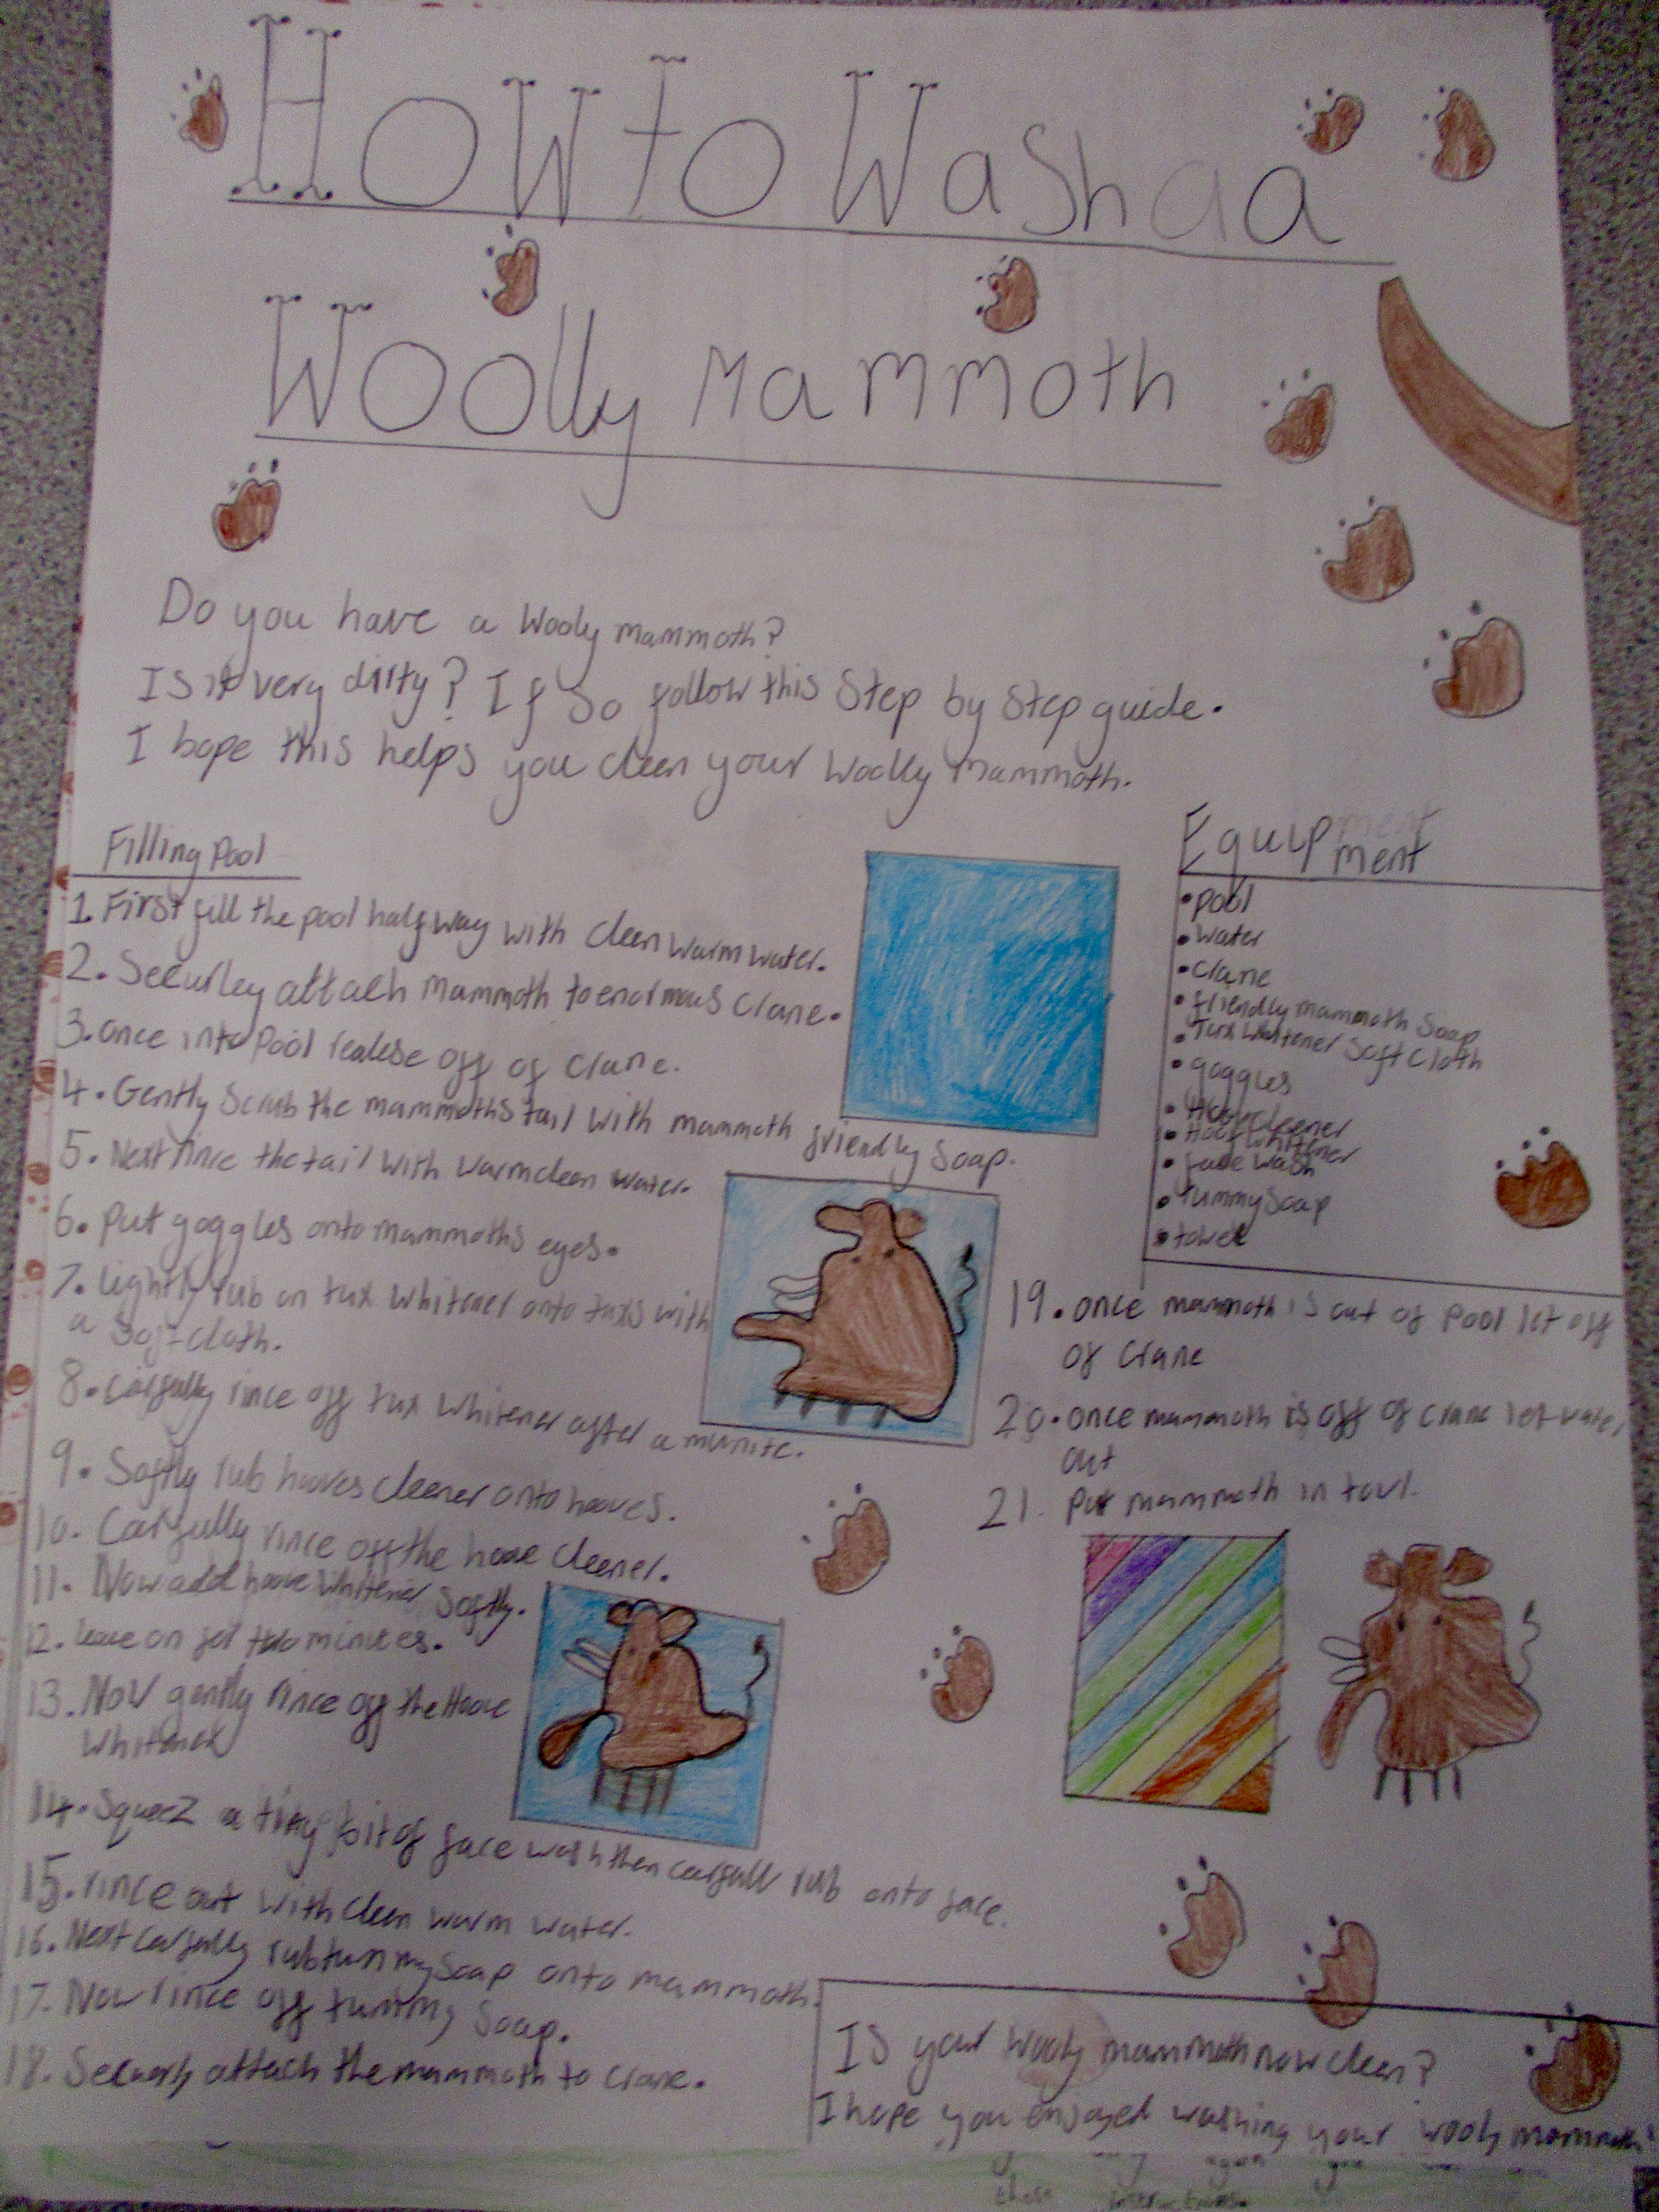 How to Wash a a
Woolly Mammoth
Do you have a Wooly mammoth?
Is it very dirty? If So follow this Step by Step guide.
I hope this helps you cleen your Woolly mammoth.
Filling Pool
1. First fill the pool half way with cleen warm water.
2. Securley attach mammoth to enormous Crane.
3. once into Pool realese off of Crane.
4. Gently Scrub the mammoths tail with mammoth
friendly Soap.
5. Next rince the tail with warm cleen water.
6. Put goggles onto mammoths eyes.
7. lightly rub on tux Whitener onto tuxs with
a Soft cloth.
8. Carfully rince off tux Whitener after a munite.
9. Softly rub hooves cleener onto hooves.
10. Carfully rince off the hoove cleener.
11. Now add hoove Whitener Softly.
12. leave on for two minutes.
13. Now gently rince off the Hoove
Whitener
14. Squeez a tiny bit of face wash then carfull rub onto face.
15. rince out with cleen warm water.
16. Next carfully rub tummy Soap onto mammoth.
17. Now rince off tummy Soap.
18. Securly attach the mammoth to crane.
Equipment
ment
• Pool
• Water
• Crane
• friendly mammoth Soap
• Tux Whitener Soft Cloth
• goggles
• Hoof cleener
• Hoof Whitener
• face Wash
• tummy Soap
• towel
19. once mammoth is out of Pool let off
of Crane
20. once mammoth is off of crane let water
out
21. Put mammoth in towl.
Is your wooly mammoth now cleen?
I hope you enjoyed washing your wooly mammoth
again
these instructions.